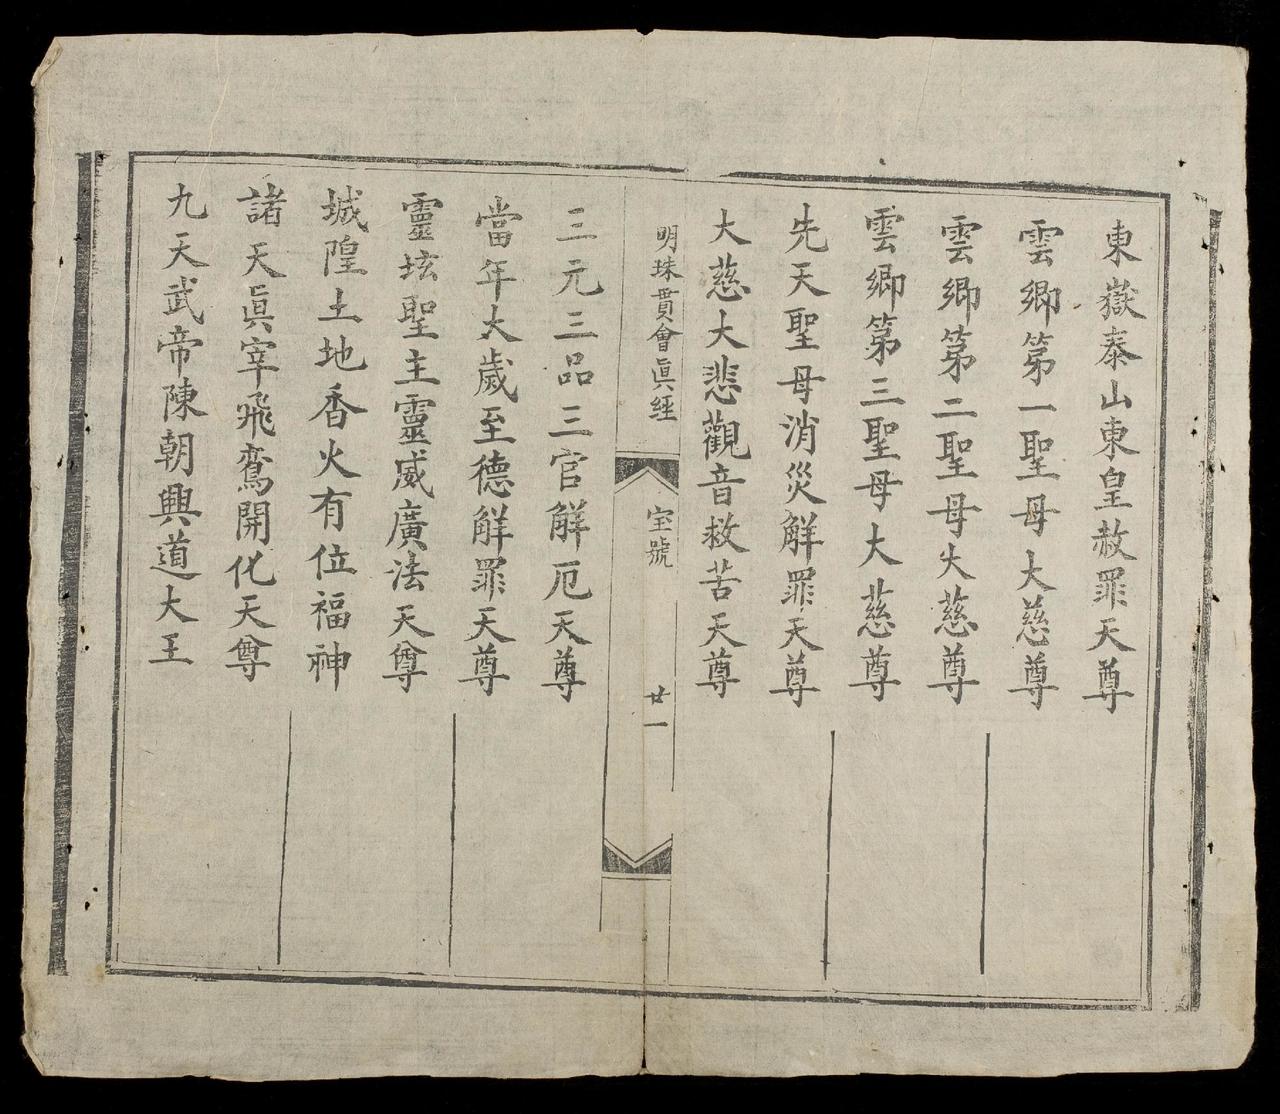 東嶽泰山東皇赦罪天尊
雲鄉第一聖母大慈尊
雲鄉第二聖母大慈尊
雲鄉第三聖母大慈尊
先天聖母消災解罪天尊
大慈大悲觀音救苦天尊
明珠貫會眞經
宝號
廿一
三元三品三官解厄天尊
當年大歲至德解罪天尊
靈坛聖主靈威廣法天尊
城隍土地香火有位福神
諸天眞宰飛鸞開化天尊
九天武帝陳朝興道大王